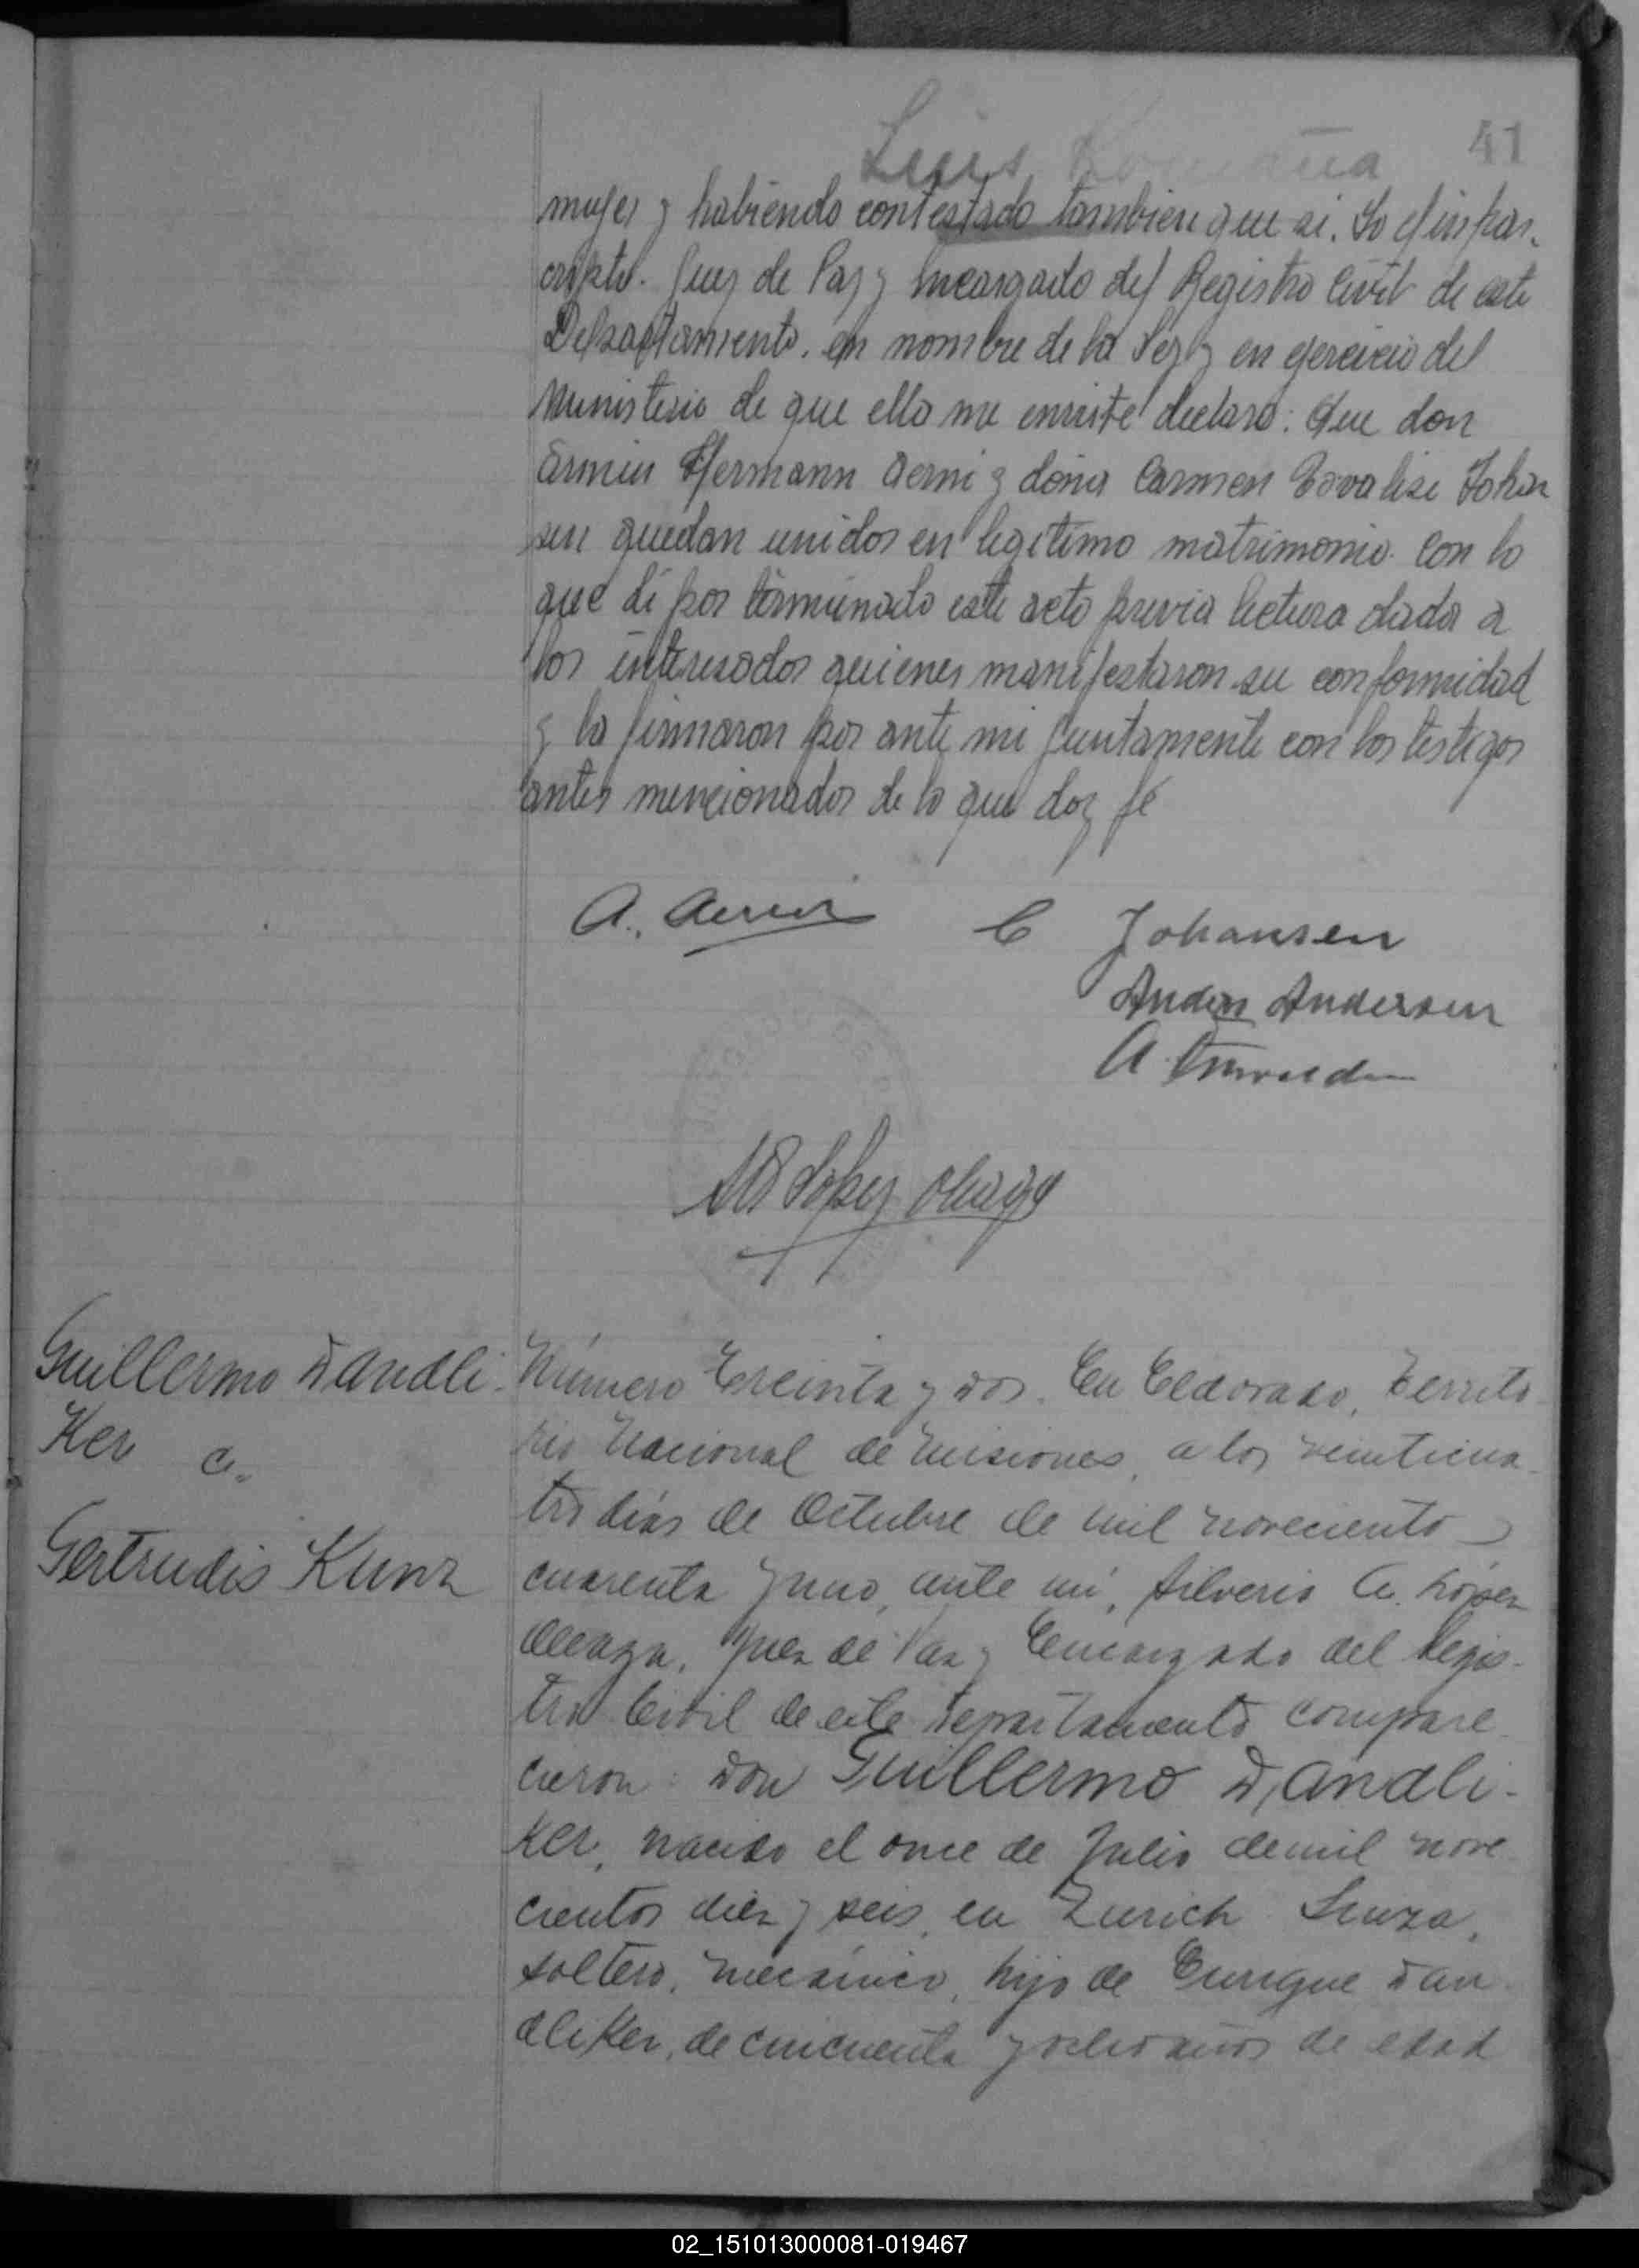 Luis
41
mujer y habiendo contestado tambien que si. Yo el infras-
cripto. Juez de Paz y Encargado del Registro Civil de este
Departamento. en nombre de la Ley y en ejercicio del
Ministerio de que ella me inviste declaro: Que don
Armin Hermann Aerni y doña Carmen Johan
sen quedan unidos en legitimo matrimonio. Con lo
que di por terminado este acto previa lectura dada a
los interesados quienes manifestaron su conformidad
y la firmaron por ante mi juntamente con los testigos
antes mencionados de lo que doy fé
A. Aerni C Johansen
Anders Andersen
A.
López Aleaga
Guillermo Dandli-
Ker c.
Gertrudis Kunz
Número Treinta y dos. En Eldorado, Territo-
rio Nacional de Misiones, a los veinticua-
tro dias de Octubre de mil noveciento
cuarenta y uno, ante mi, Silverio A. López
Aleaga, Juez de Paz y Encargado del Regis-
tro Civil de este Departamento compare-
cieron: don Guillermo Dandli-
Ker, nacido el once de Julio de mil nove-
cientos diez y seis, en Zurich Suiza,
soltero, mecánico, hijo de Enrique Dan
dliker, de cincuenta y ocho años de edad
02_151013000081-019467